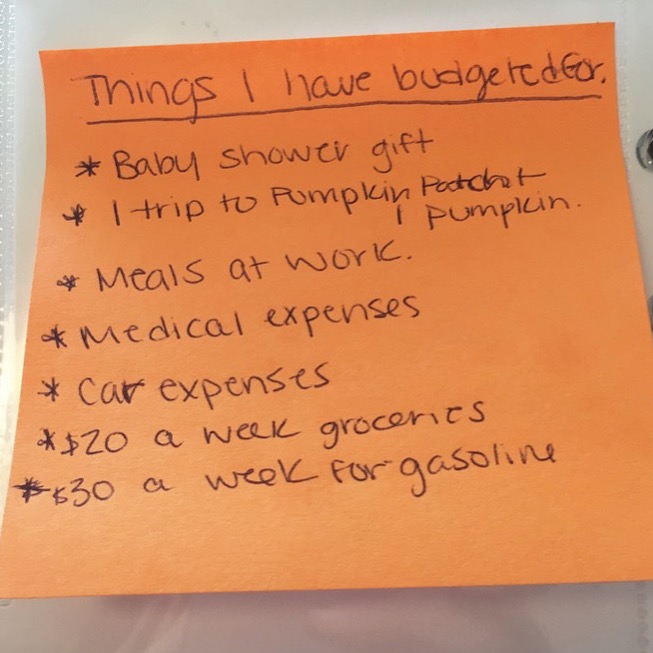 Things I have budgeted for.
* Baby shower gift
* 1 trip to Pumpkin Patch +
1 pumpkin.
* Meals at work.
* Medical expenses
* Car expenses
* $20 a week groceries
* $30 a week for gasoline